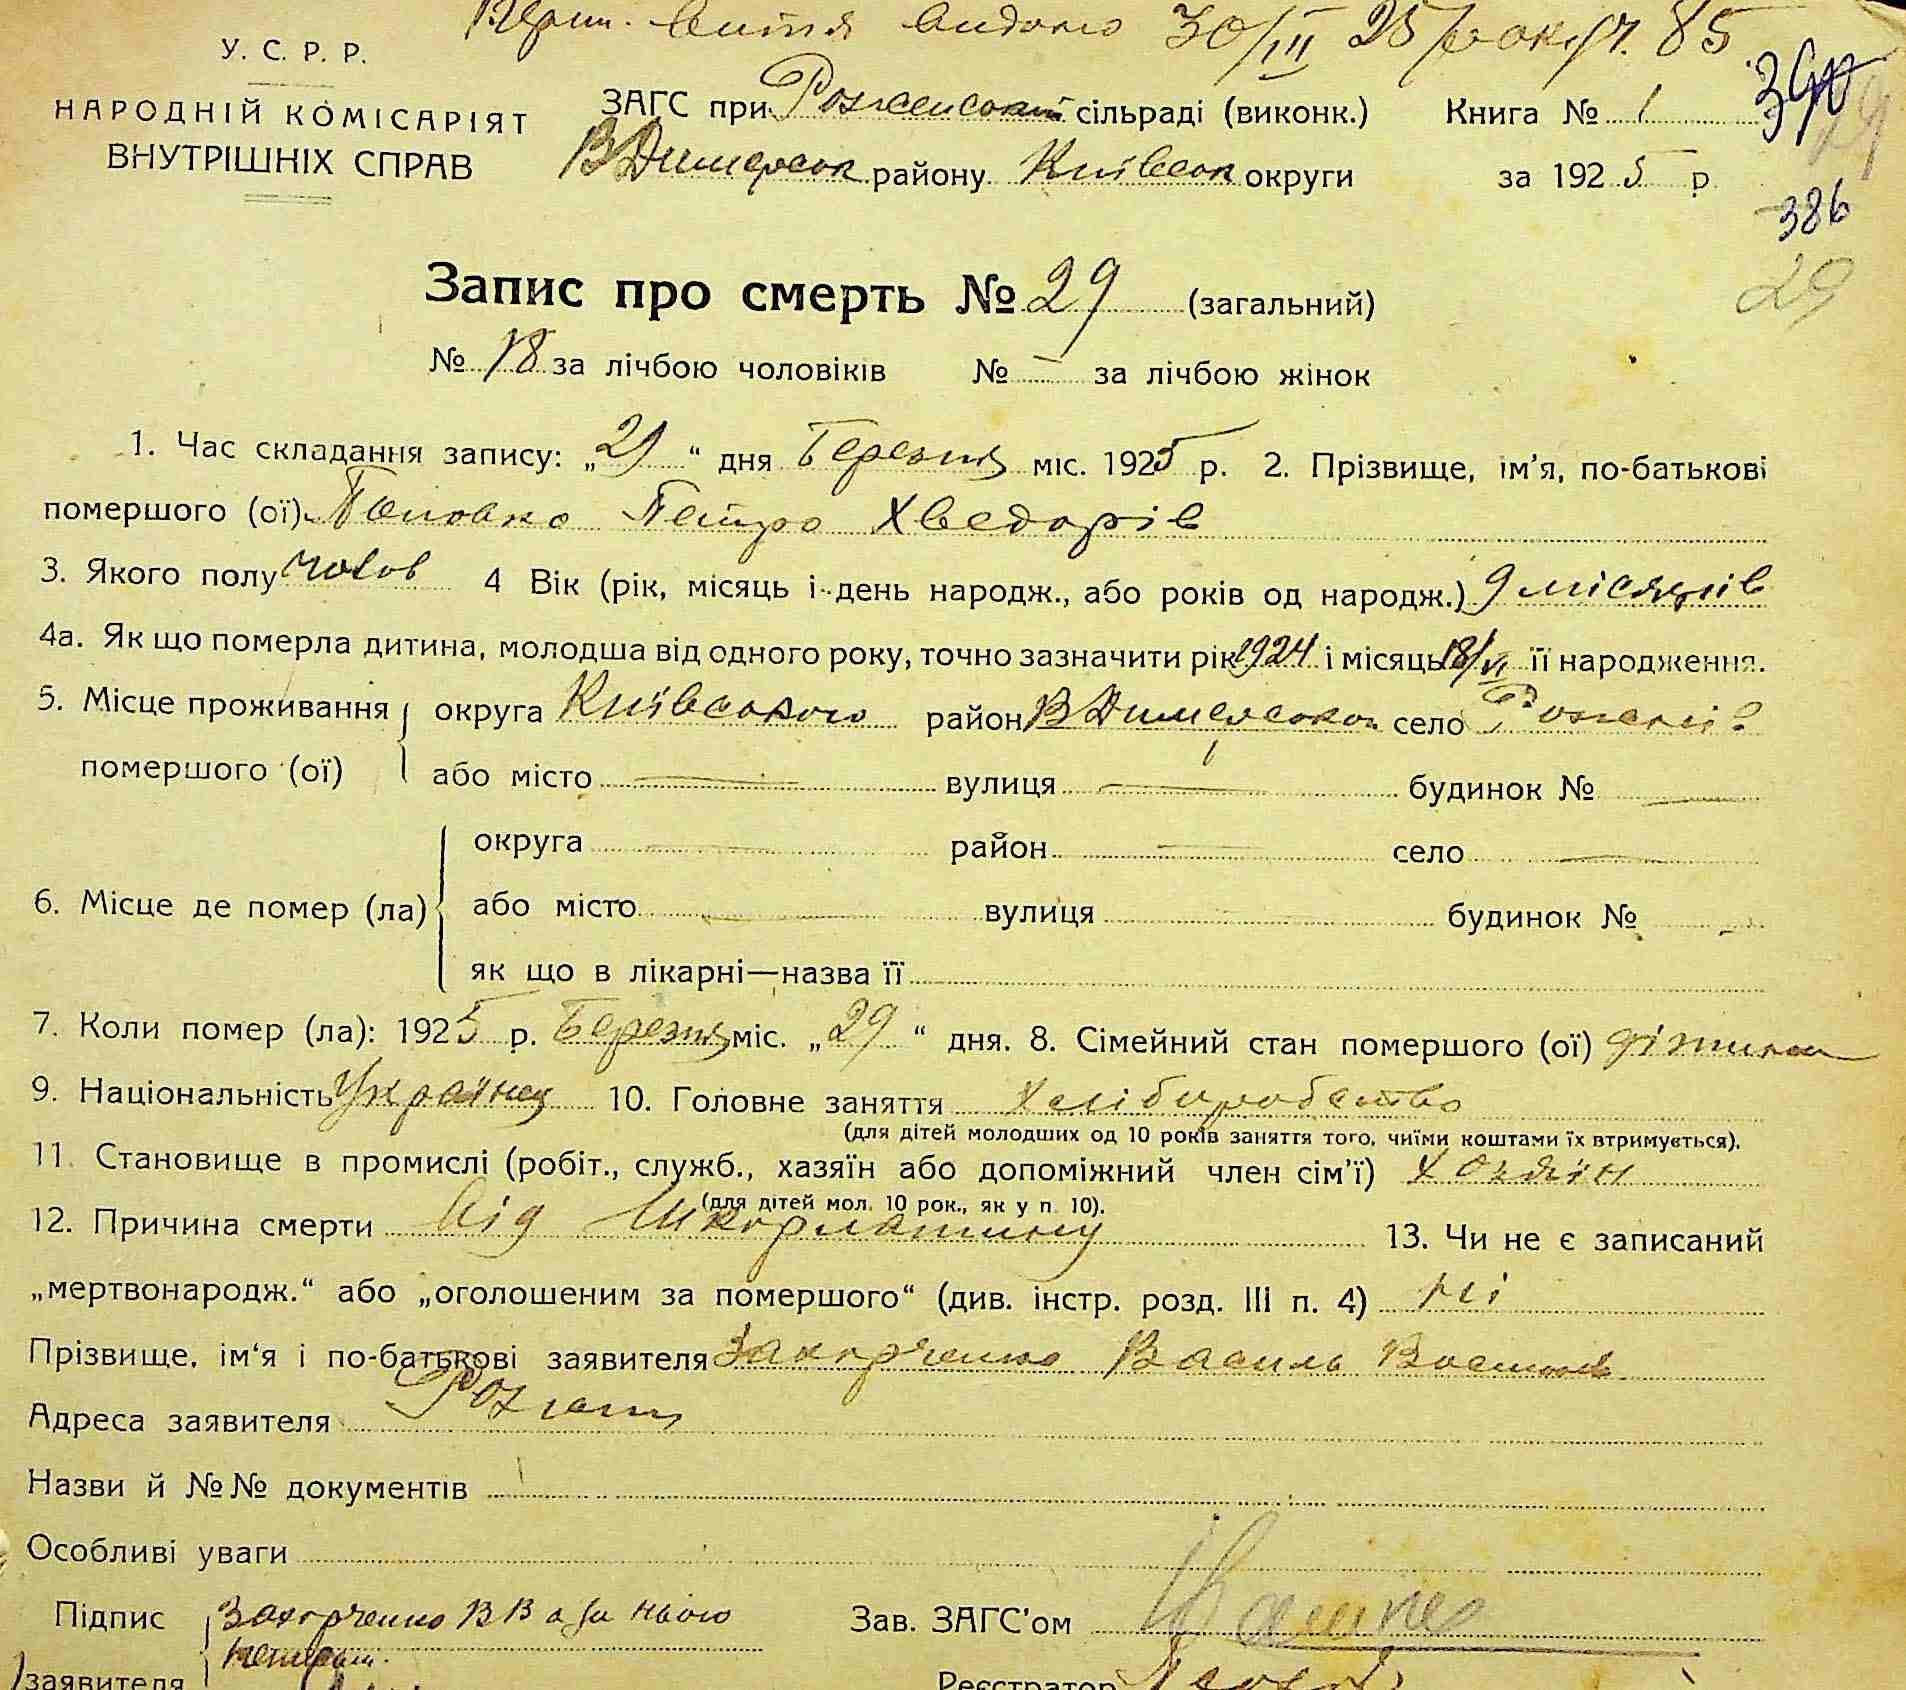 витя видано 30/III 25 року ч. 85
У. С. Р. Р.
НАРОДНІЙ КОМІСАРІЯТ
ВНУТРІШНІХ СПРАВ
ЗАГС при Рожевській сільраді (виконк.)
Книга № 1
390
ВДимерськ району Київськ округи
за 1925 р
386
29
Запис про смерть № 29 (загальний)
№ 18 за лічбою чоловіків № — за лічбою жінок
1. Час складання запису: „29“ дня Березня міс. 1925 р. 2. Прізвище, ім'я, по-батькові
помершого (ої) Петро Хведорів
3. Якого полу чолов 4 Вік (рік, місяць і день народж., або років од народж.) 9 місяців
4а. Як що померла дитина, молодша від одного року, точно зазначити рік 1924 і місяць 18/VI її народження.
5. Місце проживання округа Київського район ВДимерськог село
помершого (ої) або місто — вулиця — будинок № —
округа — район — село —
6. Місце де помер (ла) або місто — вулиця — будинок № —
як що в лікарні—назва її
7. Коли помер (ла): 1925 р. Березня міс. „29“ дня. 8. Сімейний стан помершого (ої) дітина
9. Національність Українец 10. Головне заняття хліборобство
(для дітей молодших од 10 років заняття того, чиїми коштами їх втримується).
11. Становище в промислі (робіт., служб., хазяїн або допоміжний член сім'ї) хозяїн
(для дітей мол. 10 рок., як у п. 10).
12. Причина смерти від Шкорлатину 13. Чи не є записаний
„мертвонародж.“ або „оголошеним за помершого“ (див. інстр. розд. III п. 4) ні
Прізвище, ім'я і по-батькові заявителя Захорченко Василь
Адреса заявителя
Назви й №№ документів
Особливі уваги
Підпис Захорченко ВВ а за нього
Зав. ЗАГС'ом
заявителя
Реєстратор